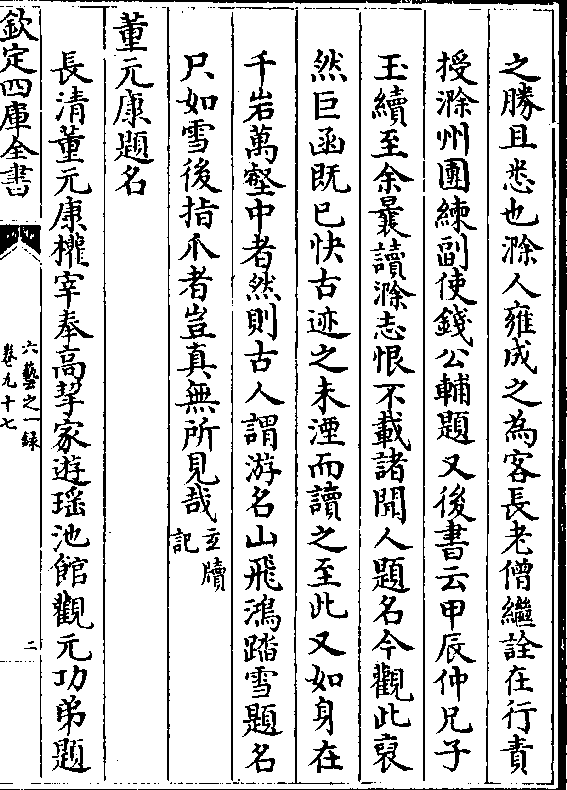 之勝且悉也滁人雍成之為客長老僧繼詮在行責
授滁州團練副使錢公輔題又後書云甲辰仲兄子
玉續至余曩讀滁志恨不載諸聞人題名今觀此裒
然巨函既已快古迹之未湮而讀之至此又如身在
千岩萬壑中者然則古人謂游名山飛鴻踏雪題名
只如雪後指爪者豈真無所見哉
玄牘
記
董元康題名
長清董元康權宰奉高挈家遊瑶池館觀元功弟題
欽定四庫全書
六藝之一録
卷九十七
二